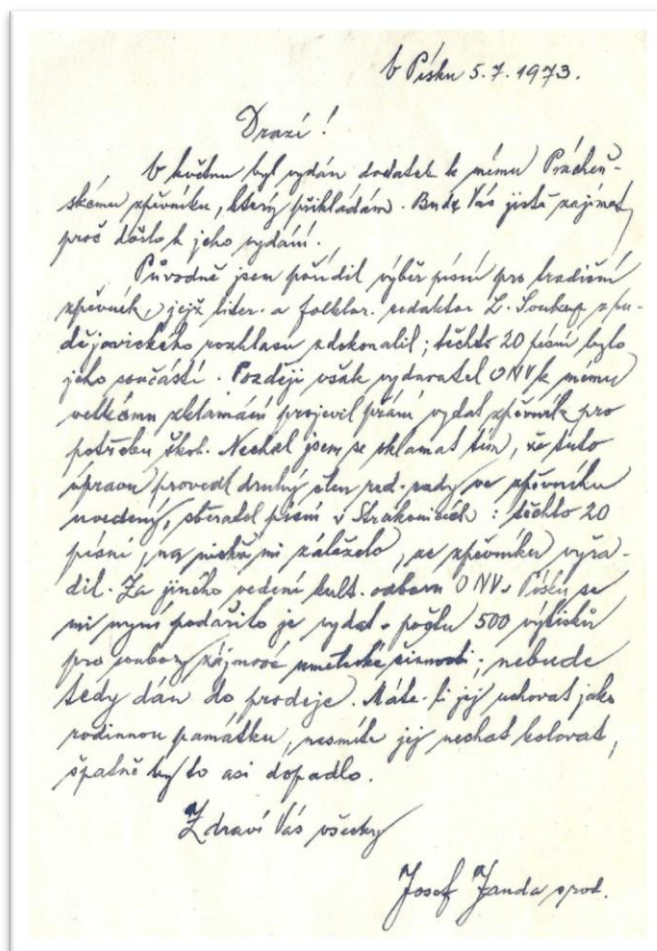 V Písku 5.7.1973.
Drazí!
V květnu byl vydán dodatek k mému Prácheň-
skému zpěvníku, který přikládám. Bude Vás jistě zajímat,
proč došlo k jeho vydání.
Původně jsem pořídil výběr písní pro tradiční
zpěvník, jejž liter. a folklor. redaktor L. Soukup z bu-
dějovického rozhlasu zdokonalil; těchto 20 písní bylo
jeho součástí. Později však vydavatel ONV k mému
velkému zklamání projevil přání vydat zpěvník pro
potřebu škol. Nechal jsem se oklamat tím, že tuto
úpravu provedl druhý člen red. rady ve zpěvníku
uvedený, sběratel písní v Strakonicích: těchto 20
písní, na nichž mi záleželo, ze zpěvníku vyřa-
dil. Za jiného vedení kult. odboru ONV v Písku se
mi nyní podařilo je vydat v počtu 500 výtisků
pro soubory zájmové umělecké činnosti; nebude
tedy dán do prodeje. Máte-li jej uchovat jako
rodinnou památku, nesmíte jej nechat kolovat,
špatně by to asi dopadlo.
Zdraví Vás všecky
Josef Janda